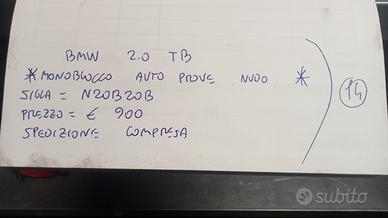 BMW 2.0 TB
*MONOBLOCCO AUTO PROVE NUDO *
SIGLA = N20B20B
PREZZO = € 900
SPEDIZIONE COMPRESA
14
subito